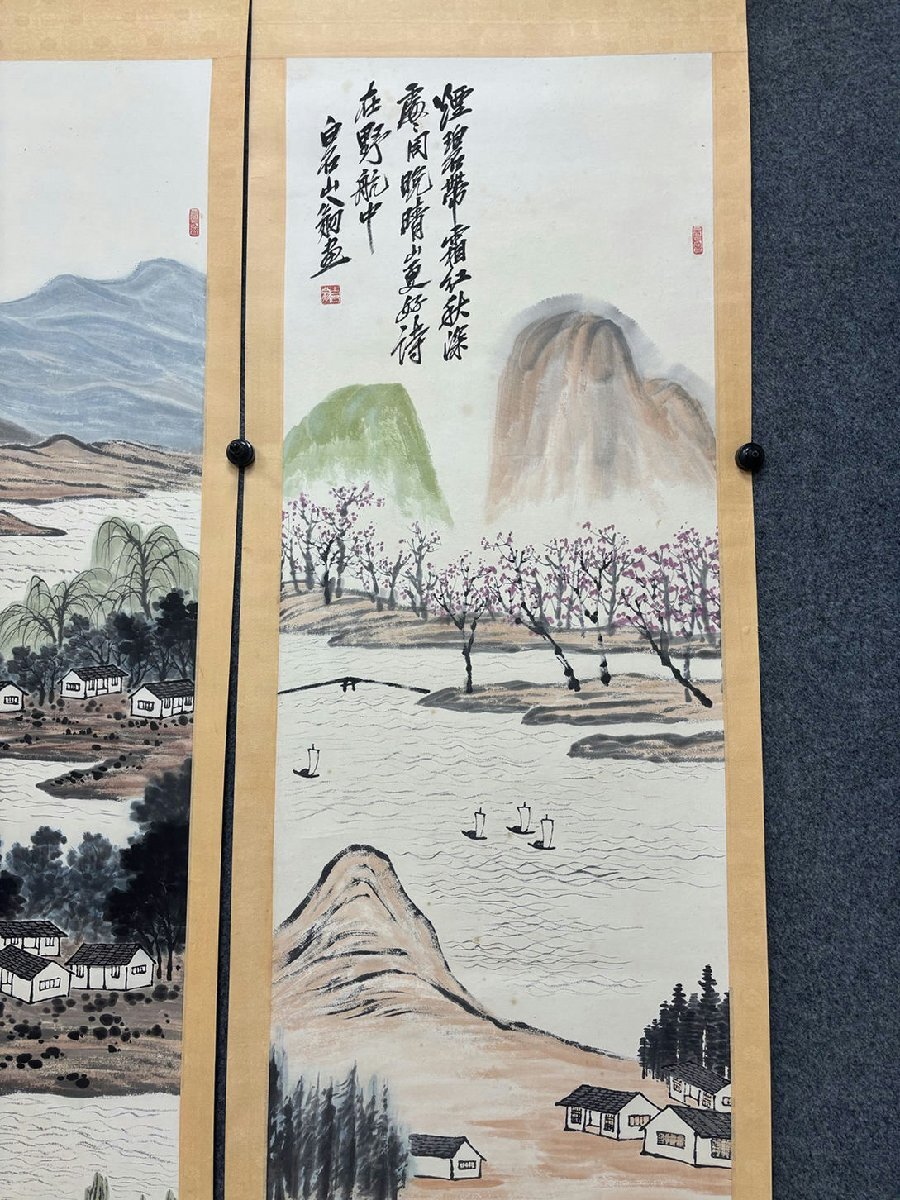 煙碧帶霜紅秋深
處〻同晚晴山更好詩
在野航中
白石山翁畫